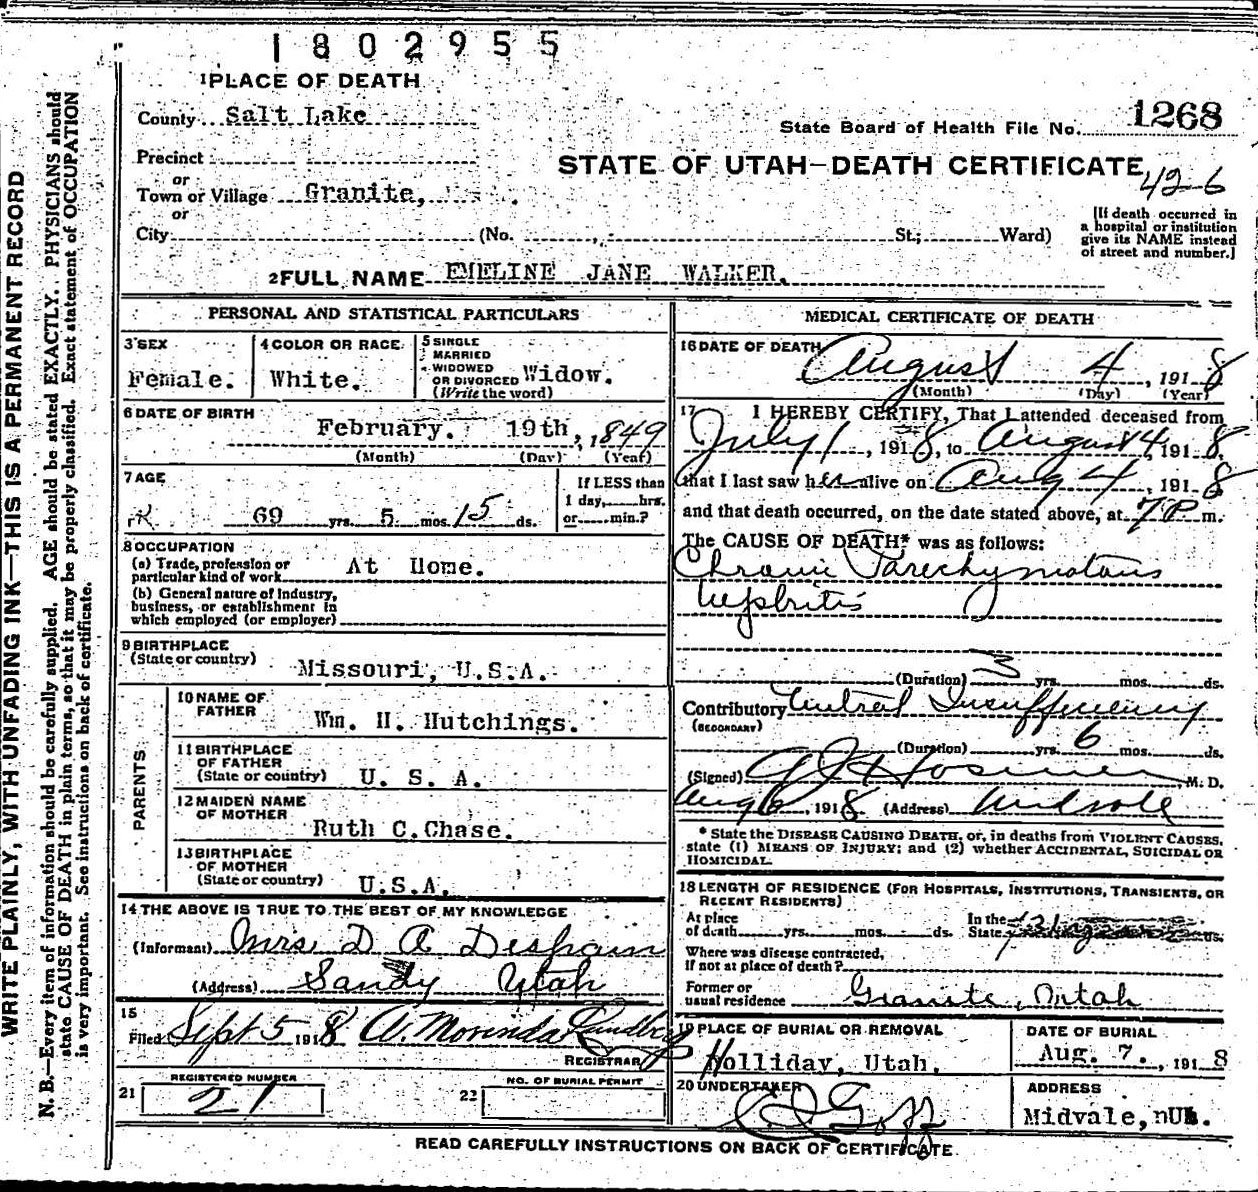 1802955
1 PLACE OF DEATH
County Salt Lake
State Board of Health File No. 1268
Precinct
STATE OF UTAH—DEATH CERTIFICATE
or
Town or Village Granite,
42-6
or
City (No. , St.; Ward)
[If death occurred in
a hospital or institution
give its NAME instead
of street and number.]
2 FULL NAME EMELINE JANE WALKER.
PERSONAL AND STATISTICAL PARTICULARS
3 SEX
Female.
4 COLOR OR RACE
White.
5 SINGLE
MARRIED
WIDOWED
OR DIVORCED Widow.
(Write the word)
6 DATE OF BIRTH
February. 19th, 1849
(Month) (Day) (Year)
7 AGE
69 yrs. 5 mos. 15 ds.
If LESS than
1 day, hrs.
or min.?
8 OCCUPATION
(a) Trade, profession or
particular kind of work At Home.
(b) General nature of Industry,
business, or establishment in
which employed (or employer)
9 BIRTHPLACE
(State or country) Missouri, U.S.A.
PARENTS
10 NAME OF
FATHER Wm. H. Hutchings.
11 BIRTHPLACE
OF FATHER
(State or country) U. S. A.
12 MAIDEN NAME
OF MOTHER
Ruth C.Chase.
13 BIRTHPLACE
OF MOTHER
(State or country) U.S.A.
14 THE ABOVE IS TRUE TO THE BEST OF MY KNOWLEDGE
(Informant) Mrs D A Despain
(Address) Sandy Utah
15
Filed Sept 5 1918 A.
REGISTRAR
21 REGISTERED NUMBER
21
22 NO. OF BURIAL PERMIT
MEDICAL CERTIFICATE OF DEATH
16 DATE OF DEATH August 4, 1918
(Month) (Day) (Year)
17 I HEREBY CERTIFY, That I attended deceased from
July 1, 1918, to August 4, 1918,
that I last saw her alive on Aug 4, 1918
and that death occurred, on the date stated above, at 7 P m.
The CAUSE OF DEATH* was as follows:
Chronic Parechymatous
nephritis
(Duration) 3 yrs. mos. ds.
Contributory Mitral Insufficiency
(SECONDARY)
(Duration) yrs. 6 mos. ds.
(Signed) M. D.
Aug 6, 1918 (Address) Midvale
* State the DISEASE CAUSING DEATH, or, in deaths from VIOLENT CAUSES,
state (1) MEANS OF INJURY; and (2) whether ACCIDENTAL, SUICIDAL OR
HOMICIDAL.
18 LENGTH OF RESIDENCE (FOR HOSPITALS, INSTITUTIONS, TRANSIENTS, OR
RECENT RESIDENTS)
At place
of death yrs. mos. ds.
In the
State ds.
Where was disease contracted,
if not at place of death?
Former or
usual residence Granite, Utah
19 PLACE OF BURIAL OR REMOVAL
Holliday, Utah.
DATE OF BURIAL
Aug. 7., 1918
20 UNDERTAKER
Goff
ADDRESS
Midvale,
READ CAREFULLY INSTRUCTIONS ON BACK OF CERTIFICATE.
WRITE PLAINLY, WITH UNFADING INK—THIS IS A PERMANENT RECORD
N. B.—Every item of information should be carefully supplied. AGE should be stated EXACTLY. PHYSICIANS should
state CAUSE OF DEATH in plain terms, so that it may be properly classified. Exact statement of OCCUPATION
is very important. See instructions on back of certificate.